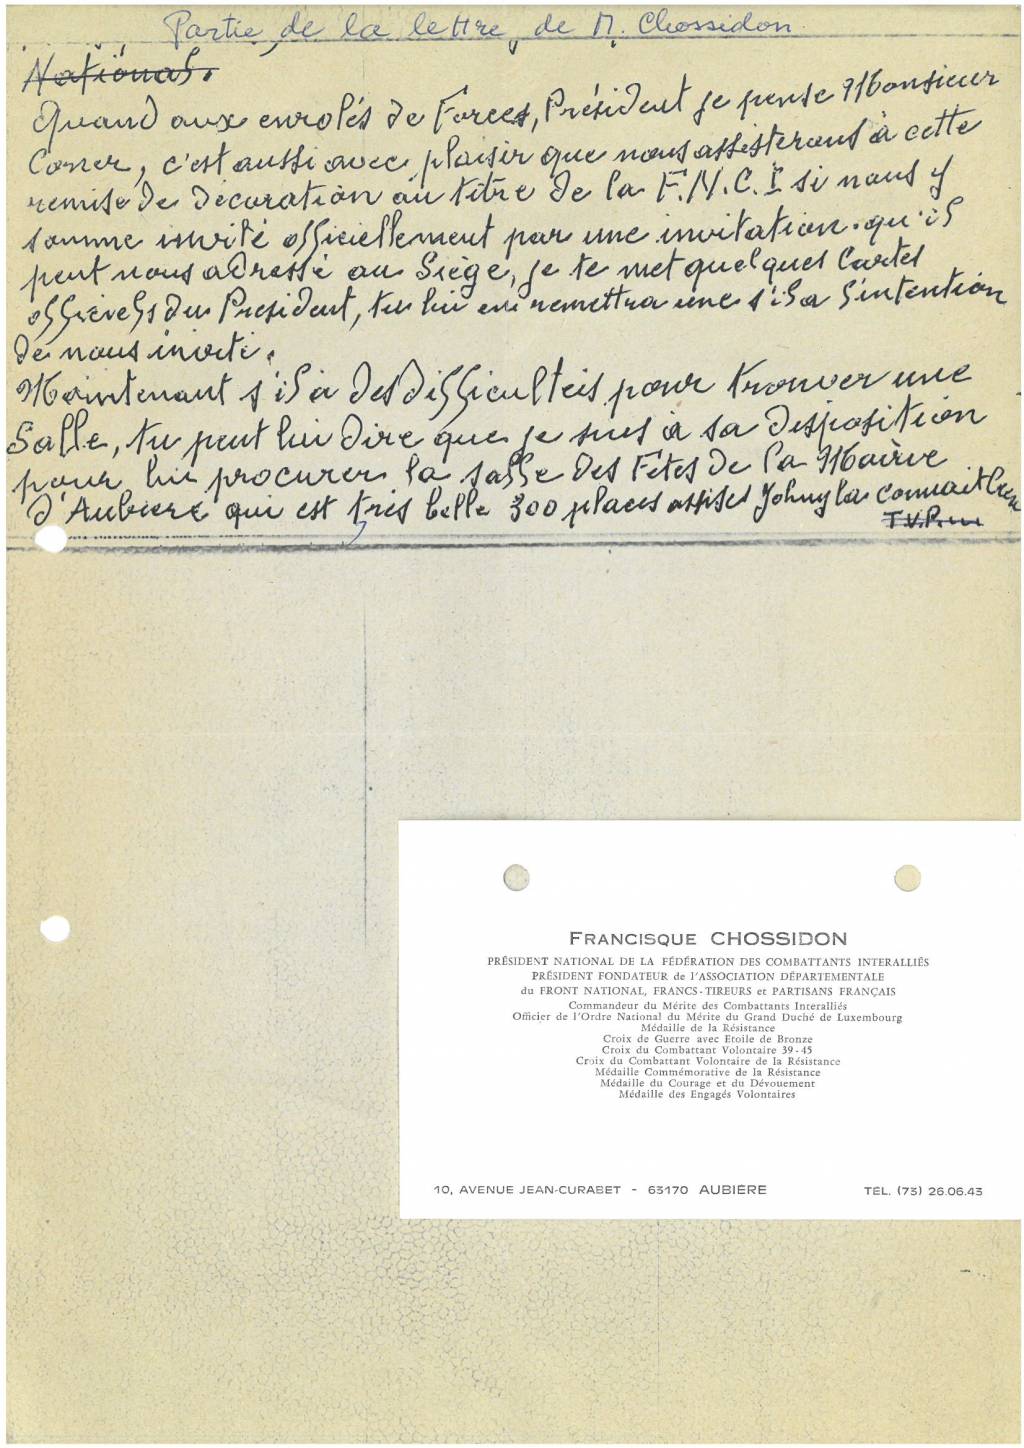 Partie de la lettre de M. Chossidon
National.
Quand aux enrolés de Forces, Président je pense Monsieur
Corner, c'est aussi avec plaisir que nous assisterons à cette
remise de décoration au titre de la F.N.C.I si nous y
somme invité officiellement par une invitation qu'il
peut nous adressé au Siège, je te met quelques Cartes
officiels du President, tu lui en remettra une s'il a l'intention
de nous invité.
Maintenant s'il a des difficulteis pour trouver une
Salle, tu peut lui dire que je suis à sa disposition
pour lui procurer la salle des Fêtes de la Mairie
d'Aubiere qui est très belle 300 places assises Johny la connait bien
T.V.P.
FRANCISQUE CHOSSIDON
PRÉSIDENT NATIONAL DE LA FÉDÉRATION DES COMBATTANTS INTERALLIÉS
PRÉSIDENT FONDATEUR de l'ASSOCIATION DÉPARTEMENTALE
du FRONT NATIONAL, FRANCS-TIREURS et PARTISANS FRANÇAIS
Commandeur du Mérite des Combattants Interalliés
Officier de l'Ordre National du Mérite du Grand Duché de Luxembourg
Médaille de la Résistance
Croix de Guerre avec Etoile de Bronze
Croix du Combattant Volontaire 39-45
Croix du Combattant Volontaire de la Résistance
Médaille Commémorative de la Résistance
Médaille du Courage et du Dévouement
Médaille des Engagés Volontaires
10, AVENUE JEAN-CURABET - 63170 AUBIÈRE
TÉL. (73) 26.06.43